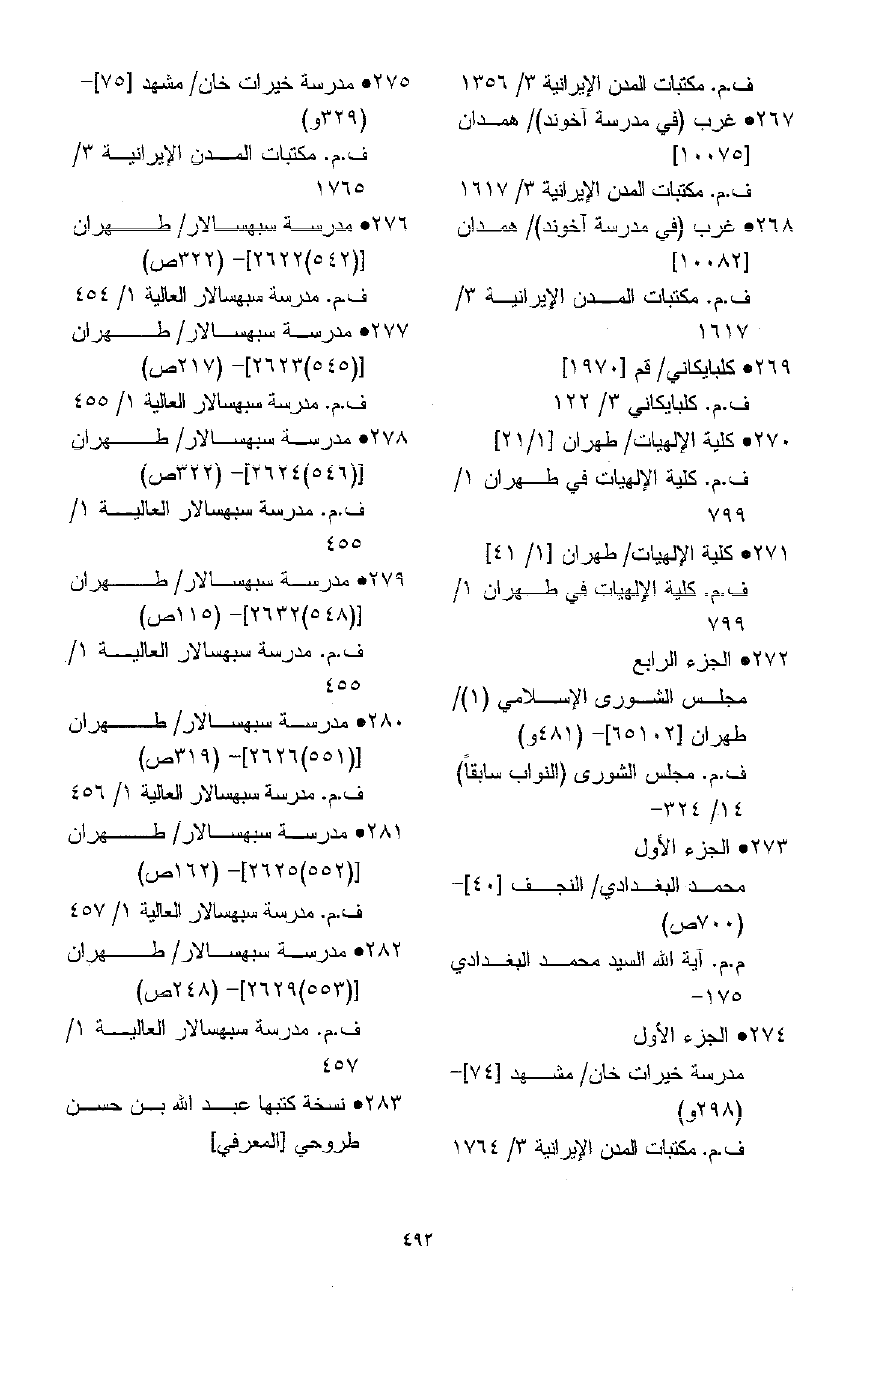 ف.م. مكتبات المدن الإيرانية ٣/ ١٣٥٦
٢٦٧● غرب (في مدرسة آخوند)/ همدان
[١٠٠٧٥]
ف.م. مكتبات المدن الإيرانية ٣/ ١٦١٧
٢٦٨● غرب (في مدرسة آخوند)/ همدان
[١٠٠٨٢]
ف.م. مكتبات المدن الإيرانية ٣/
١٦١٧
٢٦٩● كلبايكاني/ قم [١٩٧٠]
ف.م. كلبايكاني ٣/ ١٢٢
٢٧٠● كلية الإلهيات/ طهران [٢١/١]
ف.م. كلية الإلهيات في طهران ١/
٧٩٩
٢٧١● كلية الإلهيات/ طهران [١/ ٤١]
ف.م. كلية الإلهيات في طهران ١/
٧٩٩
٢٧٢● الجزء الرابع
مجلس الشورى الإسلامي (١)/
طهران [٦٥١٠٢]- (٤٨١و)
ف.م. مجلس الشورى (النواب سابقاً)
١٤/ ٣٢٤-
٢٧٣● الجزء الأول
محمد البغدادي/ النجف [٤٠]-
(٧٠٠ص)
م.م. آية الله السيد محمد البغدادي
١٧٥-
٢٧٤● الجزء الأول
مدرسة خيرات خان/ مشهد [٧٤]-
(٢٩٨و)
ف.م. مكتبات المدن الإيرانية ٣/ ١٧٦٤
٢٧٥● مدرسة خيرات خان/ مشهد [٧٥]-
(٣٢٩و)
ف.م. مكتبات المدن الإيرانية ٣/
١٧٦٥
٢٧٦● مدرسة سبهسالار/ طهران
[(٥٤٢)٢٦٢٢]- (٣٢٢ص)
ف.م. مدرسة سبهسالار العالية ١/ ٤٥٤
٢٧٧● مدرسة سبهسالار/ طهران
[(٥٤٥)٢٦٢٣]- (٢١٧ص)
ف.م. مدرسة سبهسالار العالية ١/ ٤٥٥
٢٧٨● مدرسة سبهسالار/ طهران
[(٥٤٦)٢٦٢٤]- (٣٢٢ص)
ف.م. مدرسة سبهسالار العالية ١/
٤٥٥
٢٧٩● مدرسة سبهسالار/ طهران
[(٥٤٨)٢٦٣٢]- (١١٥ص)
ف.م. مدرسة سبهسالار العالية ١/
٤٥٥
٢٨٠● مدرسة سبهسالار/ طهران
[(٥٥١)٢٦٢٦]- (٣١٩ص)
ف.م. مدرسة سبهسالار العالية ١/ ٤٥٦
٢٨١● مدرسة سبهسالار/ طهران
[(٥٥٢)٢٦٢٥]- (١٦٢ص)
ف.م. مدرسة سبهسالار العالية ١/ ٤٥٧
٢٨٢● مدرسة سبهسالار/ طهران
[(٥٥٣)٢٦٢٩]- (٢٤٨ص)
ف.م. مدرسة سبهسالار العالية ١/
٤٥٧
٢٨٣● نسخة كتبها عبد الله بن حسن
طروحي [المعرفي]
٤٩٢